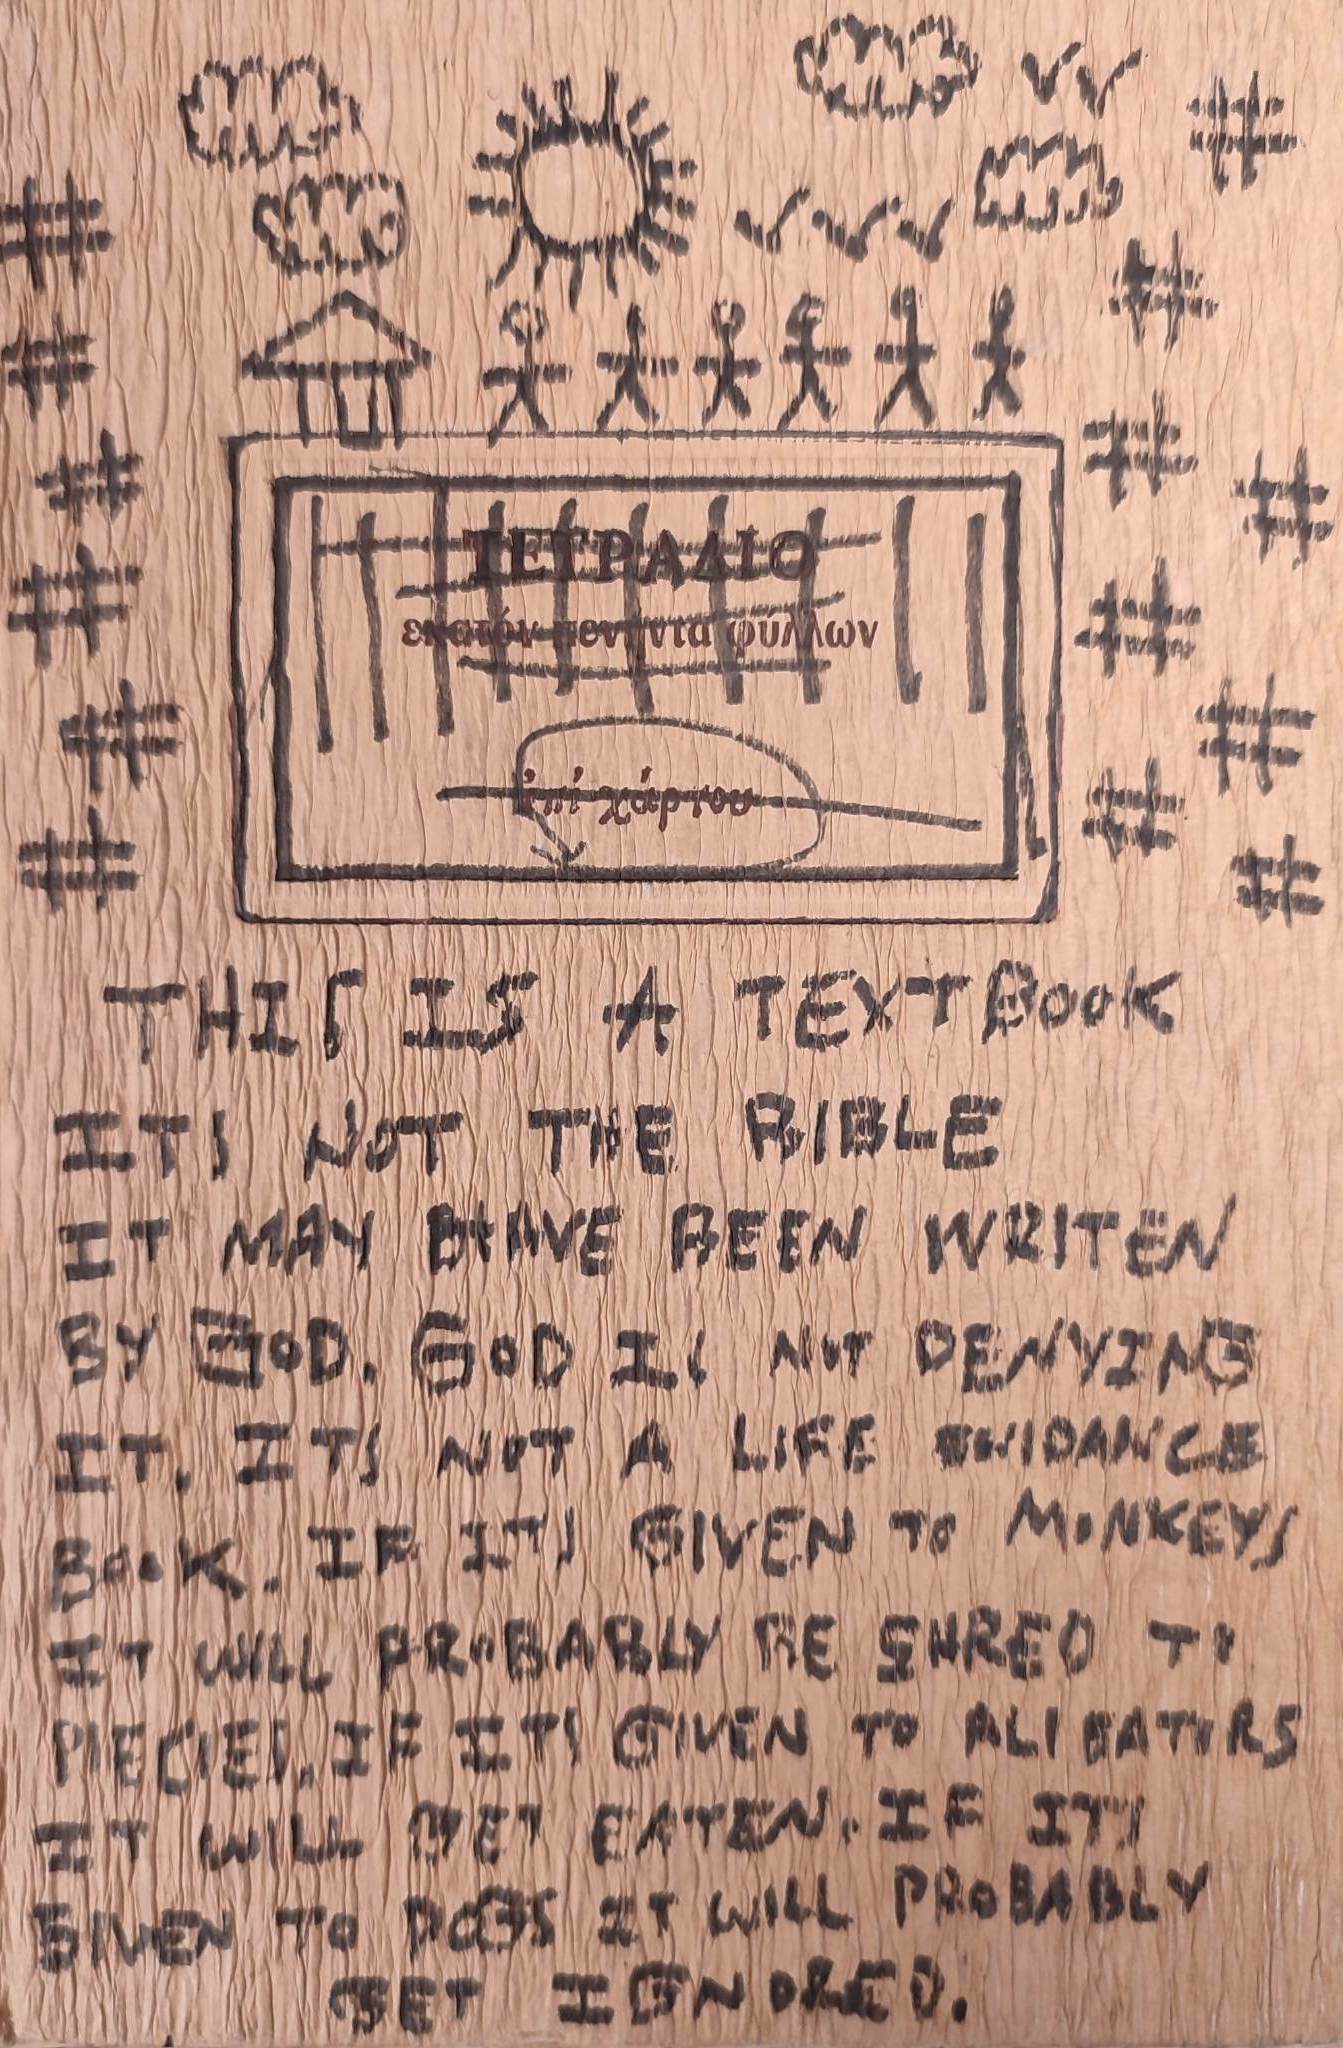 ΤΕΤΡΑΔΙΟ
εκατόν πενήντα φύλλων
ἐπί χάρτου
THIS IS A TEXTBOOK
ITS NOT THE BIBLE
IT MAY HAVE BEEN WRITEN
BY GOD. GOD IS NOT DENYING
IT. ITS NOT A LIFE GUIDANCE
BOOK. IF ITS GIVEN TO MONKEYS
IT WILL PROBABLY BE SHRED TO
PIECIES. IF ITS GIVEN TO ALIGATORS
IT WILL GET EATEN. IF ITS
GIVEN TO DOGS IT WILL PROBABLY
GET IGNORED.